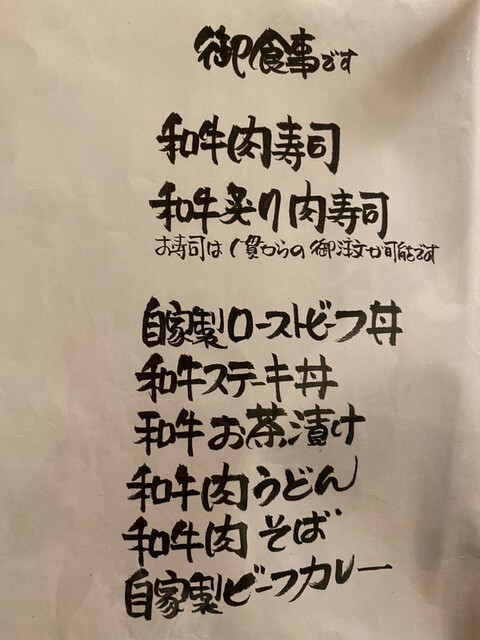 御食事です
和牛肉寿司
和牛炙り肉寿司
お寿司は1貫からの御注文が可能です
自家製ローストビーフ丼
和牛ステーキ丼
和牛お茶漬け
和牛肉うどん
和牛肉そば
自家製ビーフカレー